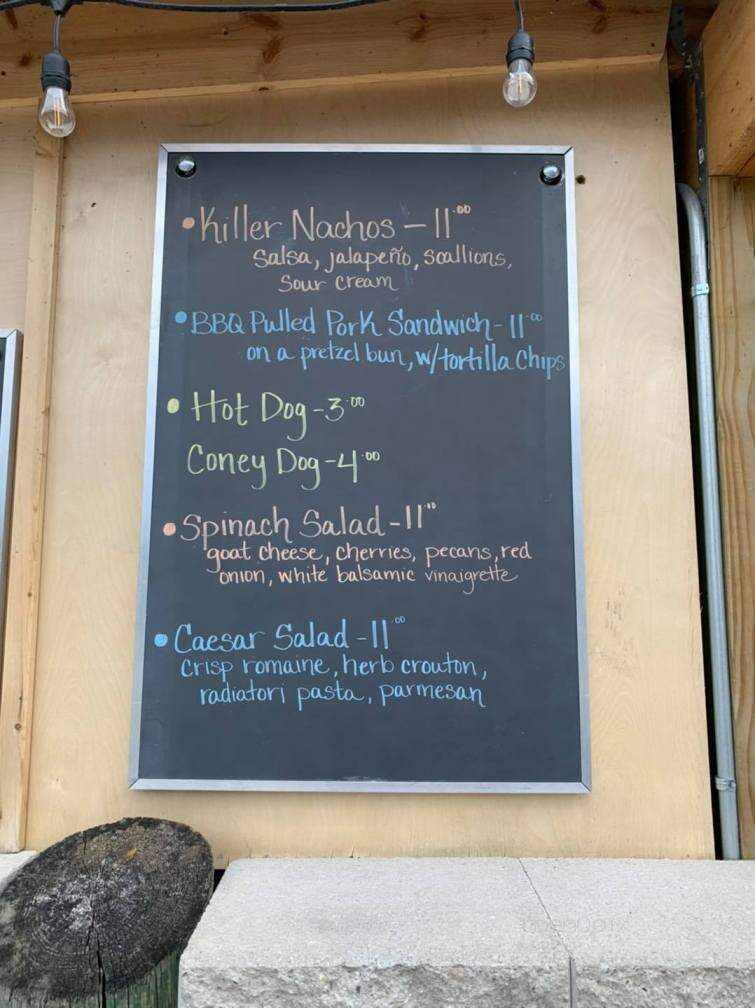 • Killer Nachos - 11.00
Salsa, jalapeño, scallions,
Sour cream
• BBQ Pulled Pork Sandwich - 11.00
on a pretzel bun, w/tortilla chips
• Hot Dog - 3.00
Coney Dog - 4.00
• Spinach Salad - 11.00
goat cheese, cherries, pecans, red
onion, white balsamic vinaigrette
• Caesar Salad - 11.00
crisp romaine, herb crouton,
radiatori pasta, parmesan